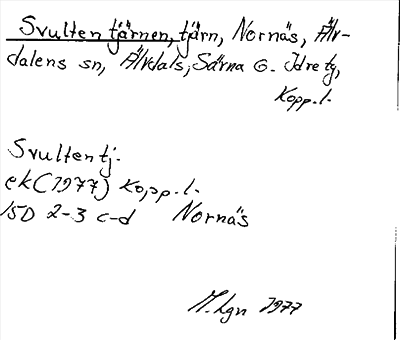 Svultentjärnen, tjärn, Nornäs, Älv-
dalens sn, Älvdals, Särna o. Idre tg,
Kopp.l.
Svultentj.
ek(1977) Kopp.l.
15D 2-3 c-d Nornäs
M.Lgn 1977